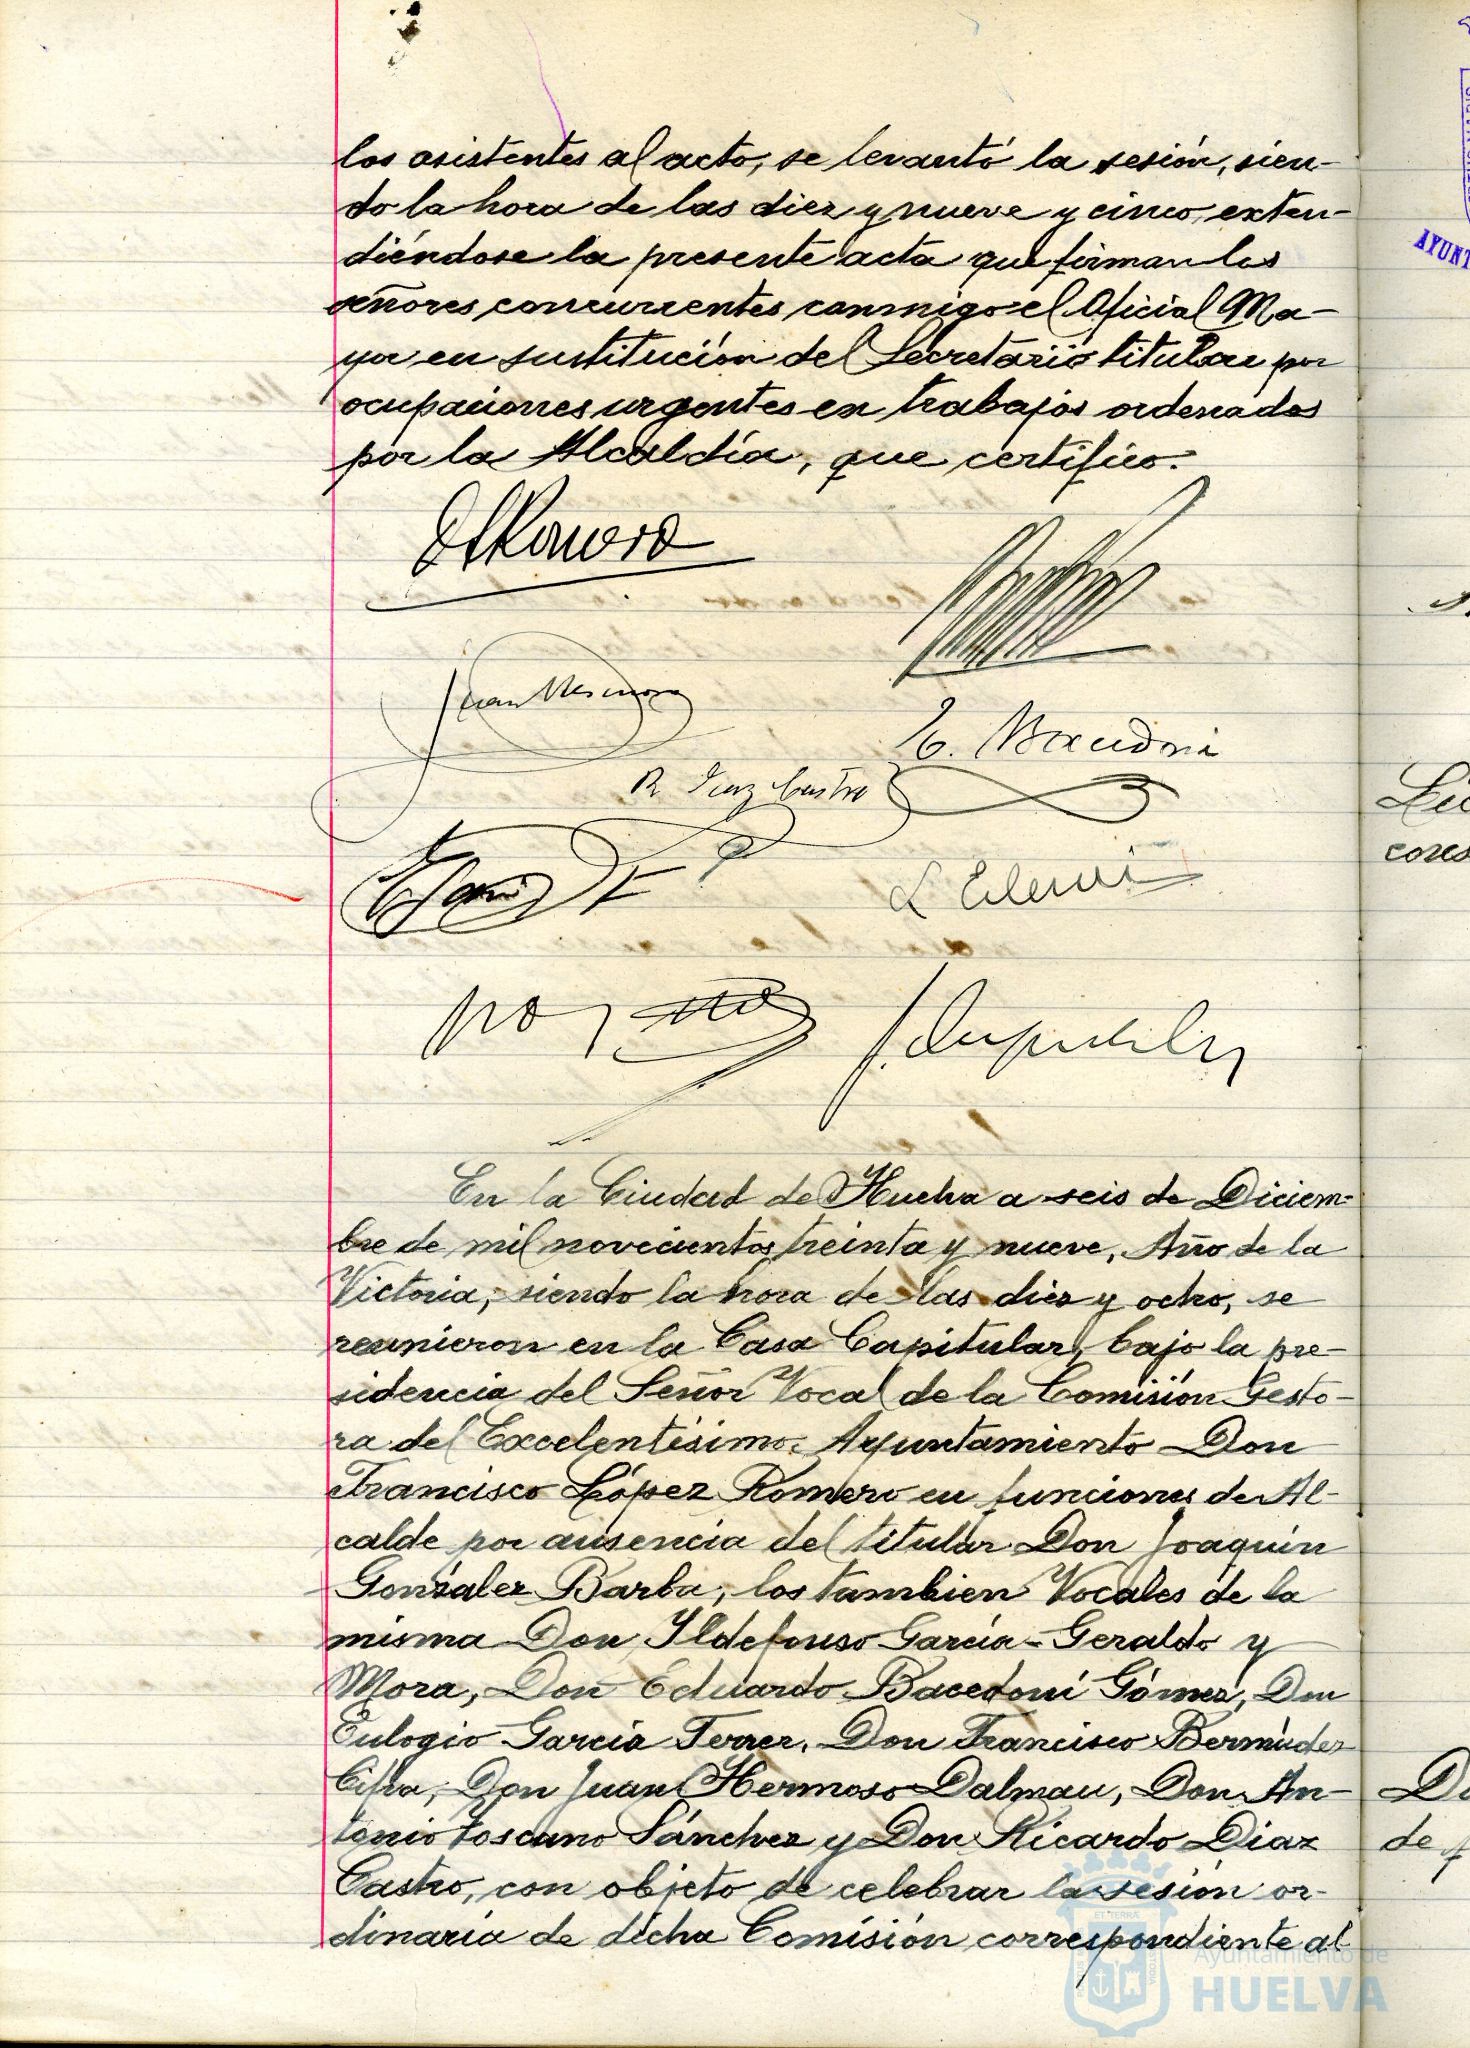 los asistentes al acto, se levantó la sesión, sien-
do la hora de las diez y nueve y cinco, exten-
diéndose la presente acta que firman los
señores concurrentes conmigo el Oficial Ma-
yor en sustitución del Secretario titular por
ocupaciones urgentes en trabajos ordenados
por la Alcaldía, que certifico.
R. Diaz Castro
En la Ciudad de Huelva a seis de Diciem-
bre de mil novecientos treinta y nueve, Año de la
Victoria, siendo la hora de las diez y ocho, se
reunieron en la Casa Capitular, bajo la pre-
sidencia del Señor Vocal de la Comisión Gesto-
ra del Excelentísimo Ayuntamiento Don
Francisco López Romero en funciones de Al-
calde por ausencia del titular Don Joaquín
González Barba, los tambien Vocales de la
misma Don Ildefonso García-Geraldo y
Mora, Don Eduardo Bacedoni Gómez, Don
Eulogio García Ferrer, Don Francisco Bermúdez
Cifra, Don Juan Hermoso Dalmau, Don An-
tonio Toscano Sánchez y Don Ricardo Diaz
Castro, con objeto de celebrar la sesión or-
dinaria de dicha Comisión correspondiente al
Ayuntamiento de
HUELVA
AYUNT
cores
de